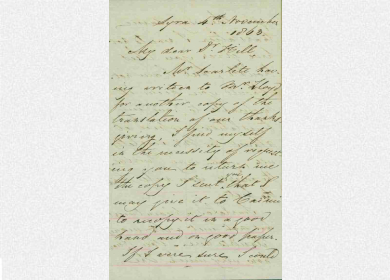 Syra 4th November
1863.
My dear Dr. Hill,
Mr. Scarlett hav
ing written to Mr. Lloyd
for another copy of the
translation of our thanks
giving, I find myself
in the necessity of request
ing you to return me
the copy I sent, that I
may give it to
to recopy it in a good
hand and on good paper.
If I were sure I could